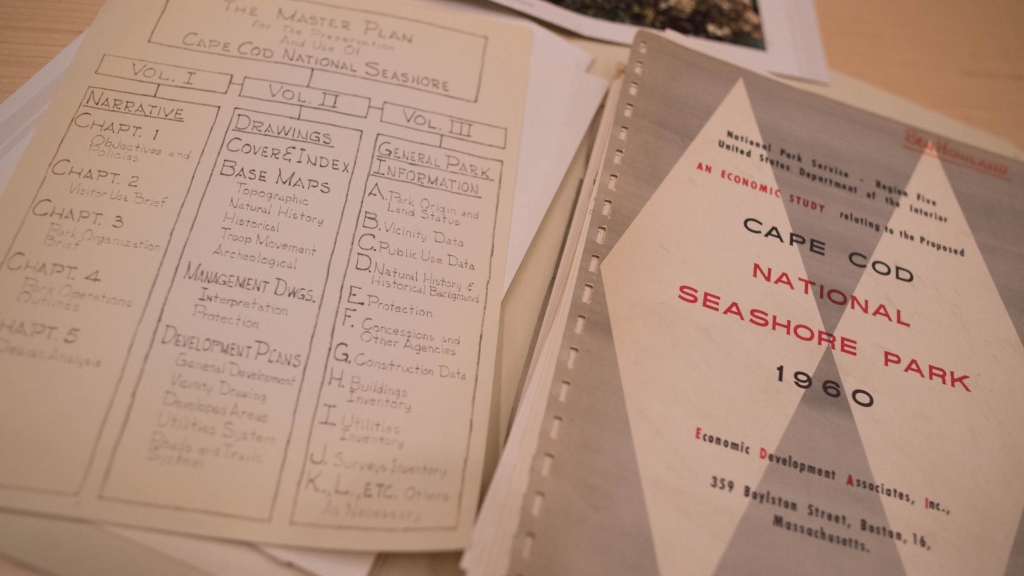 THE MASTER PLAN
For The Preservation
And Use Of
CAPE COD NATIONAL SEASHORE
VOL. I
NARRATIVE
CHAPT. 1
Objectives and
Policies
CHAPT. 2
Visitor Use Brief
CHAPT. 3
Park Organization
Brief
CHAPT. 4
Park Operations
Outlines
CHAPT. 5
Design Analysis
VOL. II
DRAWINGS
COVER & INDEX
BASE MAPS
Topographic
Natural History
Historical
Troop Movement
Archeological
MANAGEMENT DWGS.
Interpretation
Protection
DEVELOPMENT PLANS
General Development
Vicinity Drawing
Developed Areas
Utilities System
Roads and Trails
System
VOL. III
GENERAL PARK
INFORMATION
A. Park Origin and
Land Status
B. Vicinity Data
C. Public Use Data
D. Natural History &
Historical Background
E. Protection
F. Concessions and
Other Agencies
G. Construction Data
H. Buildings
Inventory
I. Utilities
Inventory
J. Surveys Inventory
K., L., ETC. Others
As Necessary
National Park Service - Region Five
United States Department of the Interior
AN ECONOMIC STUDY relating to the Proposed
CAPE COD
NATIONAL
SEASHORE PARK
1960
Economic Development Associates, Inc.,
359 Boylston Street, Boston, 16,
Massachusetts.